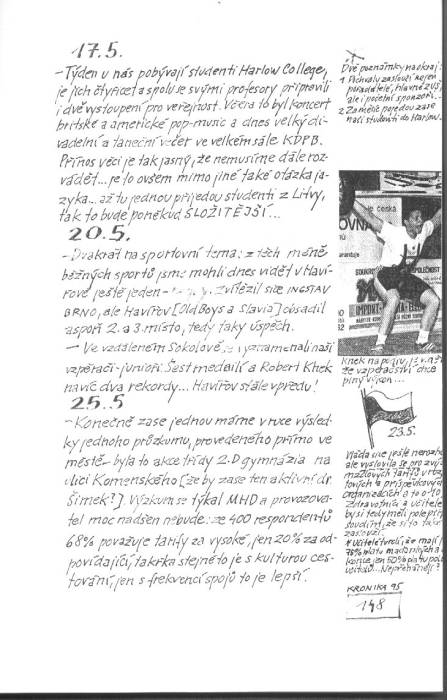 17.5.
- Týden u nás pobývají studenti Harlow College,
je jich čtyřicet a spolu se svými profesory připravili
i dvě vystoupení pro veřejnost. Včera to byl koncert
britské a americké pop-music a dnes velký di-
vadelní a taneční večer ve velkém sále KDPB.
Přínos věci je tak jasný, že nemusíme dále roz-
vádět... je to ovšem mimo jiné také otázka ja-
zyka... až tu jednou přijedou studenti z Litvy,
tak to bude poněkud SLOŽITĚJŠÍ...
20.5.
- Dvakrát na sportovní téma: z těch méně
běžných sportů jsme mohli dnes vidět v Haví-
řově ještě jeden - Zvítězil sice INGSTAV
BRNO, ale Havířov [Old Boys a Slavia] obsadil
aspoň 2. a 3. místo, tedy taky úspěch.
- Ve vzdáleném Sokolově se vyznamenali naši
vzpěrači-junioři. Šest medailí a Robert Knek
navíc dva rekordy... Havířov stále vpředu!
25.5
- Konečně zase jednou máme v ruce výsled-
ky jednoho průzkumu, provedeného přímo ve
městě - byla to akce třídy 2.D gymnázia na
ulici Komenského [že by zase ten aktivní dr.
Šimek?]. Výzkum se týkal MHD a provozova-
tel moc nadšen nebude: ze 400 respondentů
68% považuje tarify za vysoké, jen 20% za od-
povídající, takřka stejné to je s kulturou ces-
tování, jen s frekvencí spojů to je lepší.
Dvě poznámky na okraj:
1. Pochvalu zaslouží nejen
pořadatelé, hlavně ZUŠ,
ale i početní sponzoři...
2. Za měsíc pojedou zase
naši studenti do Harlow.
je česká
OVNA
IMPORT
Knek na pódiu, je vidět,
že vzpěračství chce
plný výkon...
23.5.
Vláda sice ještě
ale vyslovila se pro
mzdových tarifů v
tových a příspěvkových
organizacích a to o 10%
Zdravotníci a učitelé
by si tedy měli polepšit
soudím, že si to také
zaslouží.
KRONIKA 95
148